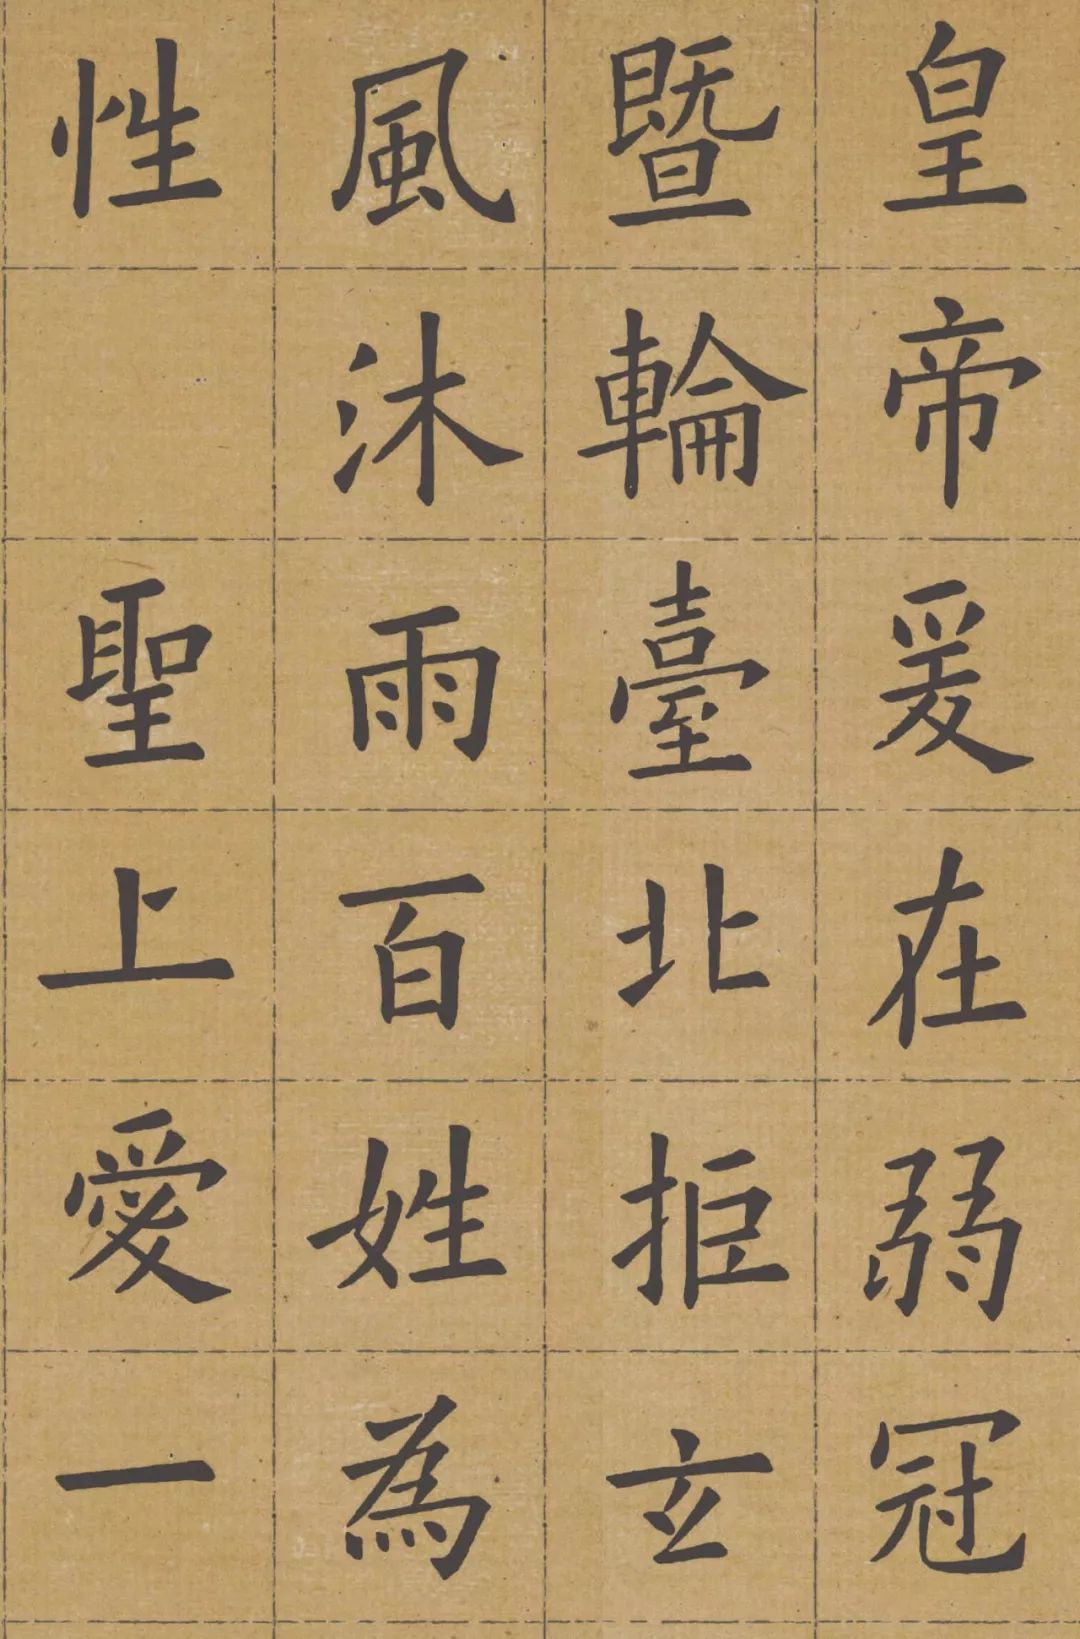 皇帝爰在弱冠
暨輪臺北拒玄
風沐雨百姓為
性 聖上愛一